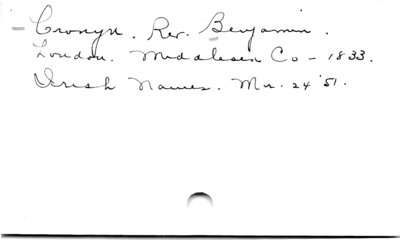 Cronyn. Rev. Benjamin.
London. Middlesex Co - 1833.
Irish Names. Mr. 24 '51.